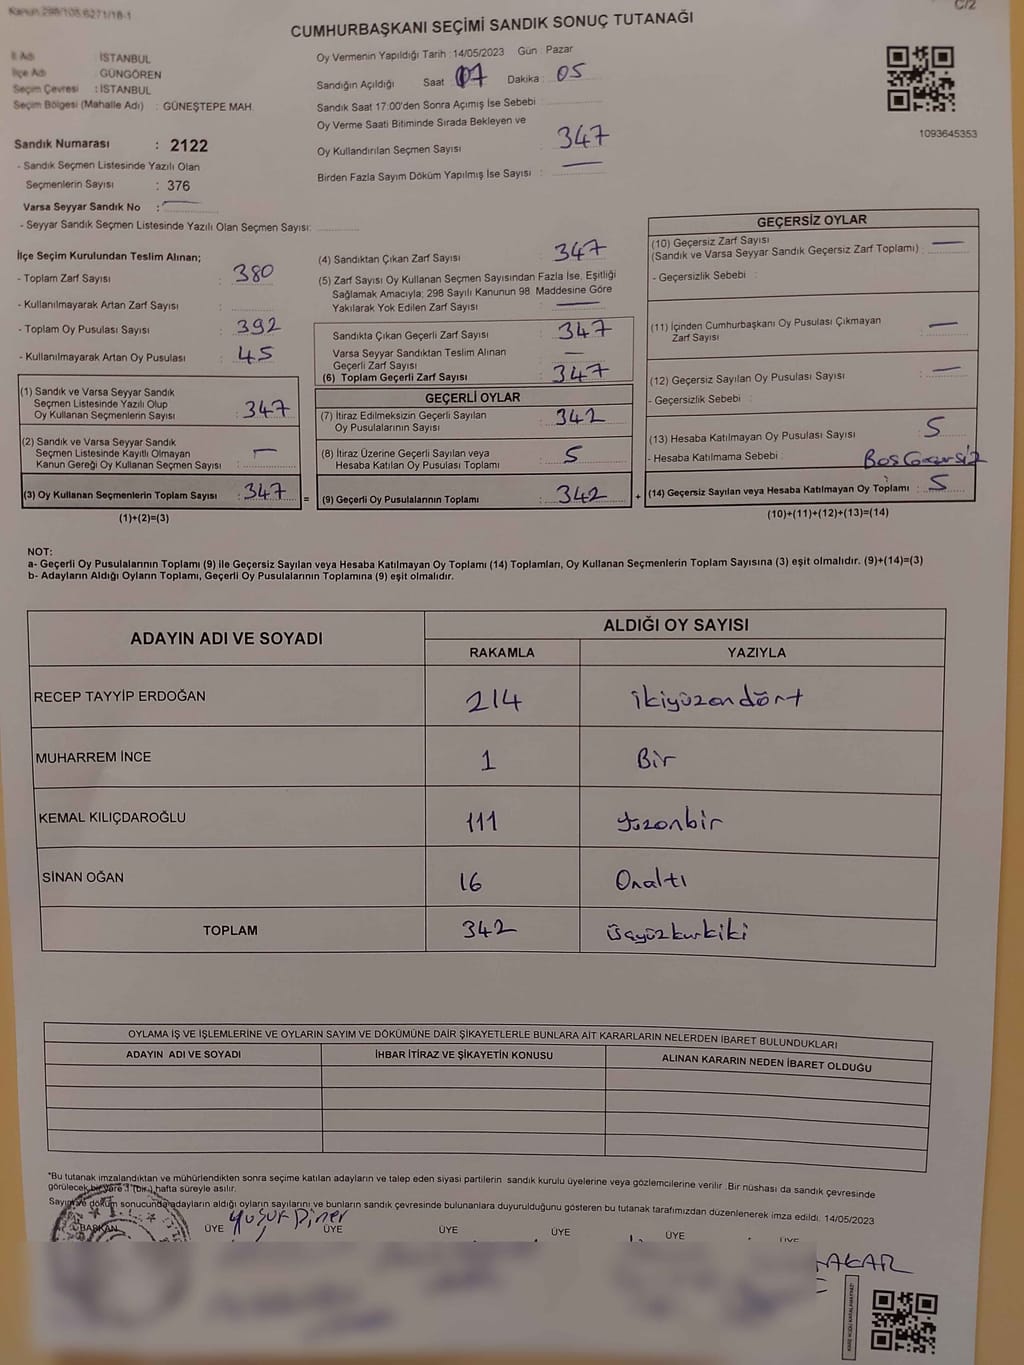 Kanun.298/105.6271/18-1
C/2
CUMHURBAŞKANI SEÇİMİ SANDIK SONUÇ TUTANAĞI
İl Adı : İSTANBUL
İlçe Adı : GÜNGÖREN
Seçim Çevresi : İSTANBUL
Seçim Bölgesi (Mahalle Adı) : GÜNEŞTEPE MAH.
Sandık Numarası : 2122
- Sandık Seçmen Listesinde Yazılı Olan
Seçmenlerin Sayısı : 376
Varsa Seyyar Sandık No : —
- Seyyar Sandık Seçmen Listesinde Yazılı Olan Seçmen Sayısı:
Oy Vermenin Yapıldığı Tarih : 14/05/2023 Gün : Pazar
Sandığın Açıldığı Saat : 07 Dakika : 05
Sandık Saat 17:00'den Sonra Açımış İse Sebebi :
Oy Verme Saati Bitiminde Sırada Bekleyen ve
Oy Kullandırılan Seçmen Sayısı : 347
Birden Fazla Sayım Döküm Yapılmış İse Sayısı : —
1093645353
İlçe Seçim Kurulundan Teslim Alınan;
- Toplam Zarf Sayısı : 380
- Kullanılmayarak Artan Zarf Sayısı :
- Toplam Oy Pusulası Sayısı : 392
- Kullanılmayarak Artan Oy Pusulası : 45
(1) Sandık ve Varsa Seyyar Sandık
Seçmen Listesinde Yazılı Olup
Oy Kullanan Seçmenlerin Sayısı : 347
(2) Sandık ve Varsa Seyyar Sandık
Seçmen Listesinde Kayıtlı Olmayan
Kanun Gereği Oy Kullanan Seçmen Sayısı : —
(3) Oy Kullanan Seçmenlerin Toplam Sayısı : 347
(1)+(2)=(3)
(4) Sandıktan Çıkan Zarf Sayısı : 347
(5) Zarf Sayısı Oy Kullanan Seçmen Sayısından Fazla İse, Eşitliği
Sağlamak Amacıyla; 298 Sayılı Kanunun 98. Maddesine Göre
Yakılarak Yok Edilen Zarf Sayısı : —
Sandıkta Çıkan Geçerli Zarf Sayısı : 347
Varsa Seyyar Sandıktan Teslim Alınan
Geçerli Zarf Sayısı : —
(6) Toplam Geçerli Zarf Sayısı : 347
GEÇERLİ OYLAR
(7) İtiraz Edilmeksizin Geçerli Sayılan
Oy Pusulalarının Sayısı : 342
(8) İtiraz Üzerine Geçerli Sayılan veya
Hesaba Katılan Oy Pusulası Toplamı : 5
= (9) Geçerli Oy Pusulalarının Toplamı : 342
GEÇERSİZ OYLAR
(10) Geçersiz Zarf Sayısı
(Sandık ve Varsa Seyyar Sandık Geçersiz Zarf Toplamı) : —
- Geçersizlik Sebebi :
(11) İçinden Cumhurbaşkanı Oy Pusulası Çıkmayan
Zarf Sayısı : —
(12) Geçersiz Sayılan Oy Pusulası Sayısı : —
- Geçersizlik Sebebi :
(13) Hesaba Katılmayan Oy Pusulası Sayısı : 5
- Hesaba Katılmama Sebebi : Bos Gecersiz
+ (14) Geçersiz Sayılan veya Hesaba Katılmayan Oy Toplamı : 5
(10)+(11)+(12)+(13)=(14)
NOT:
a- Geçerli Oy Pusulalarının Toplamı (9) ile Geçersiz Sayılan veya Hesaba Katılmayan Oy Toplamı (14) Toplamları, Oy Kullanan Seçmenlerin Toplam Sayısına (3) eşit olmalıdır. (9)+(14)=(3)
b- Adayların Aldığı Oyların Toplamı, Geçerli Oy Pusulalarının Toplamına (9) eşit olmalıdır.
ADAYIN ADI VE SOYADI ALDIĞI OY SAYISI
RAKAMLA YAZIYLA
RECEP TAYYİP ERDOĞAN 214 ikiyüzondört
MUHARREM İNCE 1 Bir
KEMAL KILIÇDAROĞLU 111 yüzonbir
SİNAN OĞAN 16 Onaltı
TOPLAM 342 üçyüzkırkiki
OYLAMA İŞ VE İŞLEMLERİNE VE OYLARIN SAYIM VE DÖKÜMÜNE DAİR ŞİKAYETLERLE BUNLARA AİT KARARLARIN NELERDEN İBARET BULUNDUKLARI
ADAYIN ADI VE SOYADI İHBAR İTİRAZ VE ŞİKAYETİN KONUSU ALINAN KARARIN NEDEN İBARET OLDUĞU
*Bu tutanak imzalandıktan ve mühürlendikten sonra seçime katılan adayların ve talep eden siyasi partilerin sandık kurulu üyelerine veya gözlemcilerine verilir. Bir nüshası da sandık çevresinde
görülecek bir yere 1 (bir) hafta süreyle asılır.
Sayım ve döküm sonucunda adayların aldığı oyların sayılarını ve bunların sandık çevresinde bulunanlara duyurulduğunu gösteren bu tutanak tarafımızdan düzenlenerek imza edildi. 14/05/2023
BAŞKAN ÜYE Yusuf Diner ÜYE ÜYE ÜYE ÜYE ÜYE
AKAR